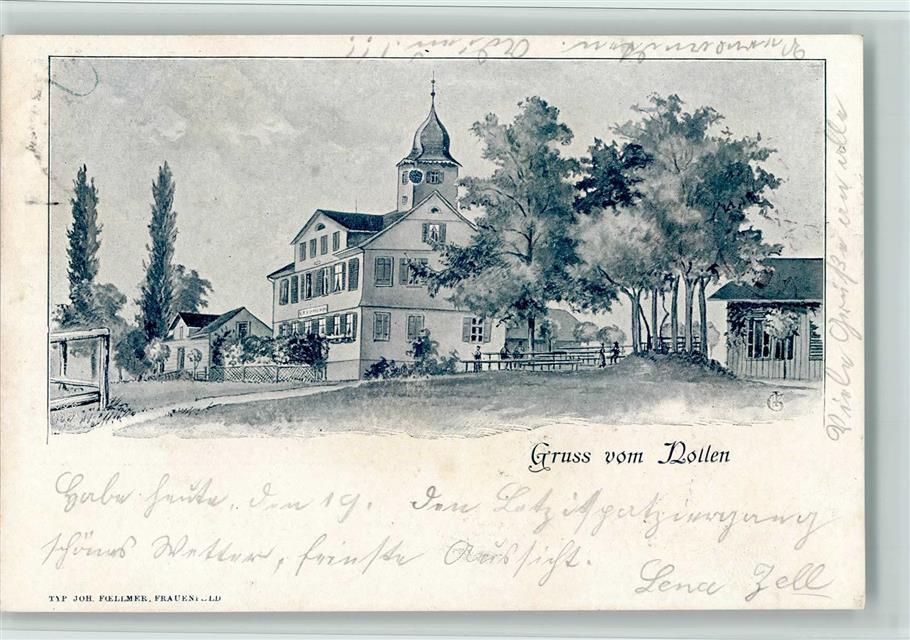 Gruss vom Nollen
Habe heute, den 19. den
schönes Wetter, feinste Aussicht.
Lena Zell
Viele Grüße an alle
TYP. JOH. FŒLLMER, FRAUENFELD